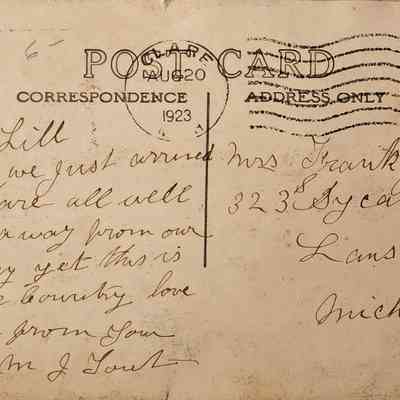 6-
POST CARD
CLARE
AUG 20
1923
CORRESPONDENCE
ADDRESS ONLY
Lill
we just arrived
are all well
way from our
yet this is
Country love
from your
M J
Mrs Frank
323 Syca
Lans
Mich